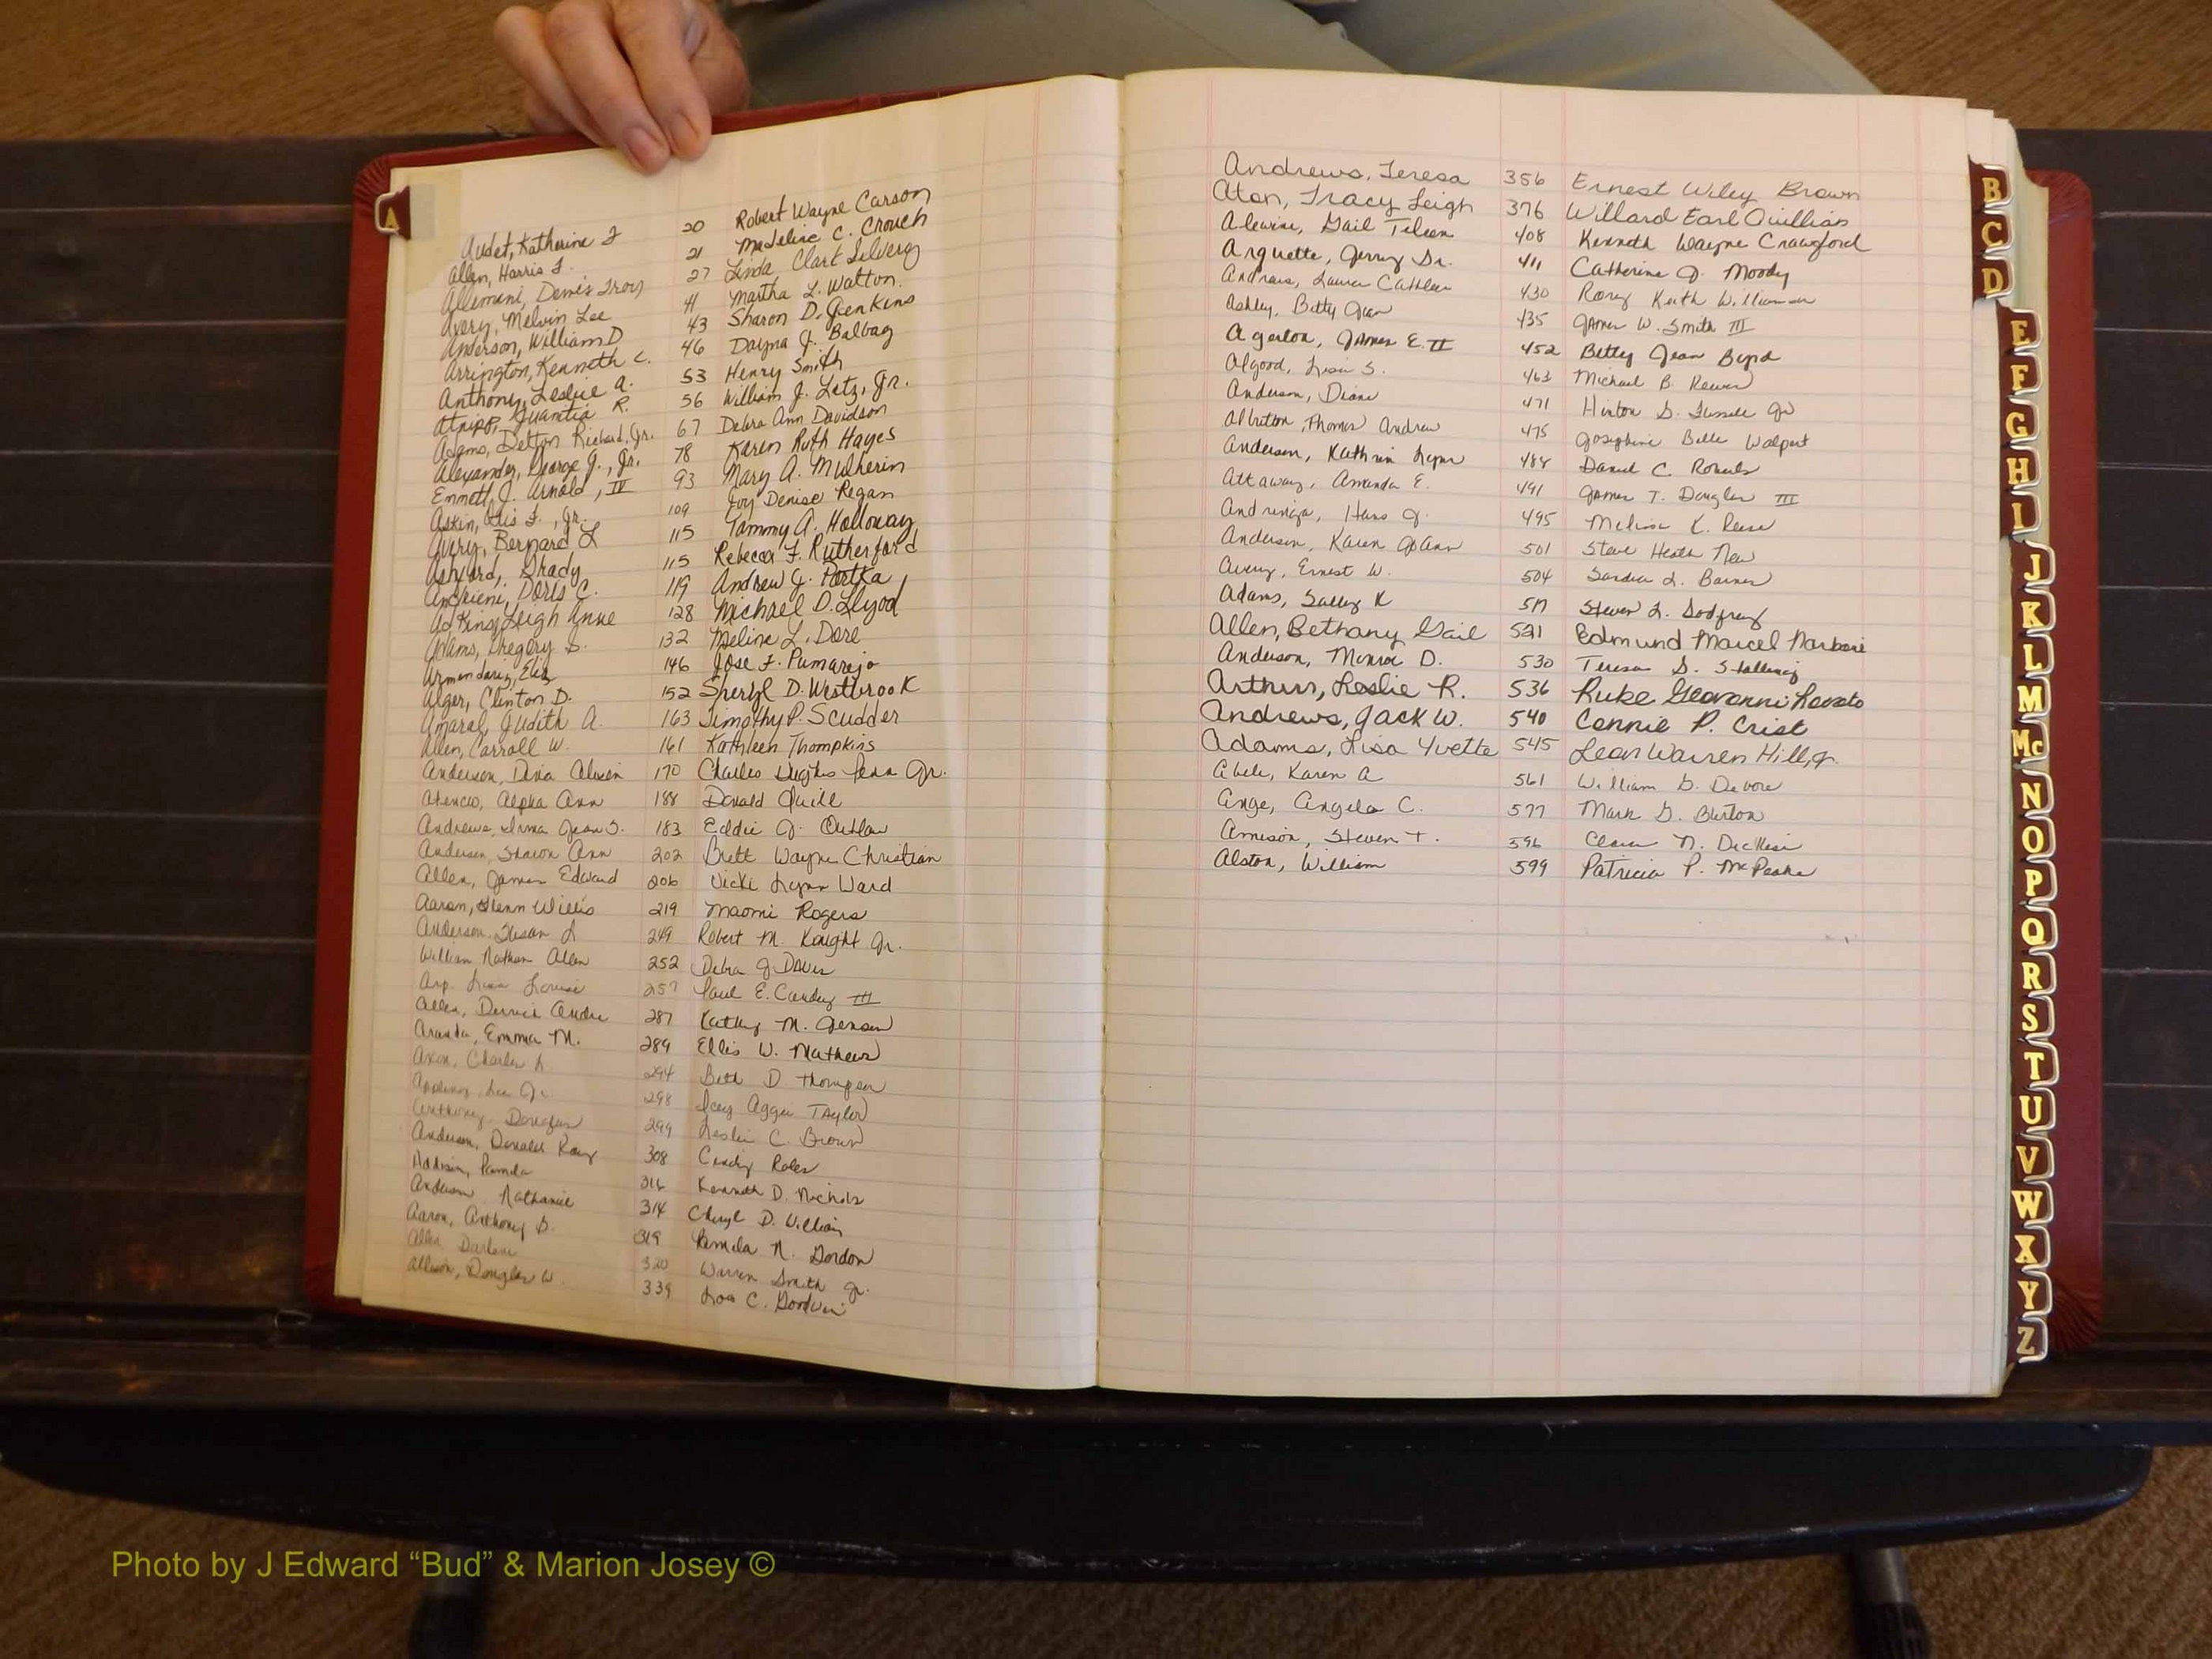 A
Audet, Katherine F 20 Robert Wayne Carson
Allen, Harris F. 21 Madeline C. Crouch
Allemani, Denis Troy 27 Linda Clart
Avery, Melvin Lee 41 Martha L. Walton
Anderson, William D 43 Sharon D. Jenkins
Arrington, Kenneth C. 46 Dayna J. Balbag
Anthony, Leslie A. 53 Henry Smith
Atnipp, Juantia R. 56 William J. Letz, Jr.
Adams, Delton Richard, Jr. 67 Debra Ann Davidson
Alexander, George J., Jr. 78 Karen Ruth Hayes
Emmett J. Arnold, IV 93 Mary A. Mulherin
Askin, Otis F., Jr. 109 Joy Denise Regan
Avery, Bernard L 115 Tammy A. Holloway
Ashford, Grady 115 Rebecca F. Rutherford
Doris C. 119 Andrew J. Portka
Adkins, Leigh Anne 128 Michael D. Llyod
Adams, Gregory S. 132 Meline L. Dore
Armendariz, Eliz 146 Jose F. Pumarejo
Alger, Clinton D. 152 Sheryl D. Westbrook
Amaral, Judith A. 163 Timothy P. Scudder
Allen, Carroll W. 161 Kathleen Thompkins
Anderson, Dina Alison 170 Charles Hughes Penn Jr.
Atencio, Alpha Ann 188 Donald Quill
Andrews, Irma Jean S. 183 Eddie J. Outlaw
Andersen, Sharon Ann 202 Brett Wayne Christian
Allen, James Edward 206 Vicki Lynn Ward
Aaron, Glenn Willis 219 Naomi Rogers
Anderson, Susan L 249 Robert M. Knight Jr.
William Nathan Allen 252 Debra J. Davis
Arp, Lisa Louise 257 Paul E. Candey III
Allen, Derrick Andre 287 Kathy M. Jensen
Aranda, Emma M. 289 Ellis W. Mathews
Axon, Charles L 294 Beth D. Thompson
Appling, Lee Jr. 298 Icey Aggie Taylor
Anthony, 299 Leslie C. Brown
Anderson, Donald Ray 308 Cindy Roles
Addison, Pamela 316 Kenneth D. Nichols
Anderson, Nathaniel 314 Cheryl D. William
Aaron, Anthony D. 319 Pamela N. Gordon
Allen, Darlene 320 Warren Smith Jr.
Allison, Douglas W. 339 Lou C. Goodwin
Andrews, Teresa 356 Ernest Wiley Brown
Aton, Tracy Leigh 376 Willard Earl Quillian
Alewine, Gail 408 Kenneth Wayne Crawford
Arquette, Jerry Sr. 411 Catherine J. Moody
Lauren Cathleen 430 Rory Keith Williamson
Ashley, Betty Jean 435 James W. Smith III
Agerton, James E. II 452 Betty Jean Byrd
Algood, Lisa S. 463 Michael B. Reeves
Anderson, Diane 471 Hinton S. Jr
Albritton, Thomas Andrew 475 Josephine Belle Walpert
Anderson, Kathrin Lynn 488 Daniel C. Roberts
Attaway, Amanda E. 491 James T. Douglas III
Andringa, Hans J. 495 Melissa K. Reese
Anderson, Karen JoAnn 501 Steve Heath New
Avery, Ernest W. 504 Sandra L. Barnes
Adams, Sally K 517 Steven L. Godfrey
Allen, Bethany Gail 521 Edmund Marcel Narboni
Anderson, Monroe D. 530 Teresa D. Stallings
Arthurs, Leslie R. 536 Ruke Geovanni Lovato
Andrews, Jack W. 540 Connie P. Crist
Adams, Lisa Yvette 545 Leon Warren Hill, Jr.
Abele, Karen A 561 William D. Devore
Ange, Angela C. 577 Mark G. Burton
Amison, Steven T. 596 N.
Alston, William 599 Patricia P. McPeake
B
C
D
E
F
G
H
I
J
K
L
M
Mc
N
O
P
Q
R
S
T
U
V
W
X
Y
Z
Photo by J Edward “Bud” & Marion Josey ©